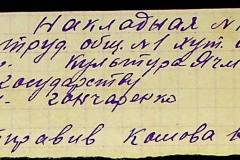 Накладная №1
труд. общ. №1 хут.
культура Ячм
Государству
Гончаренко
правив Комова